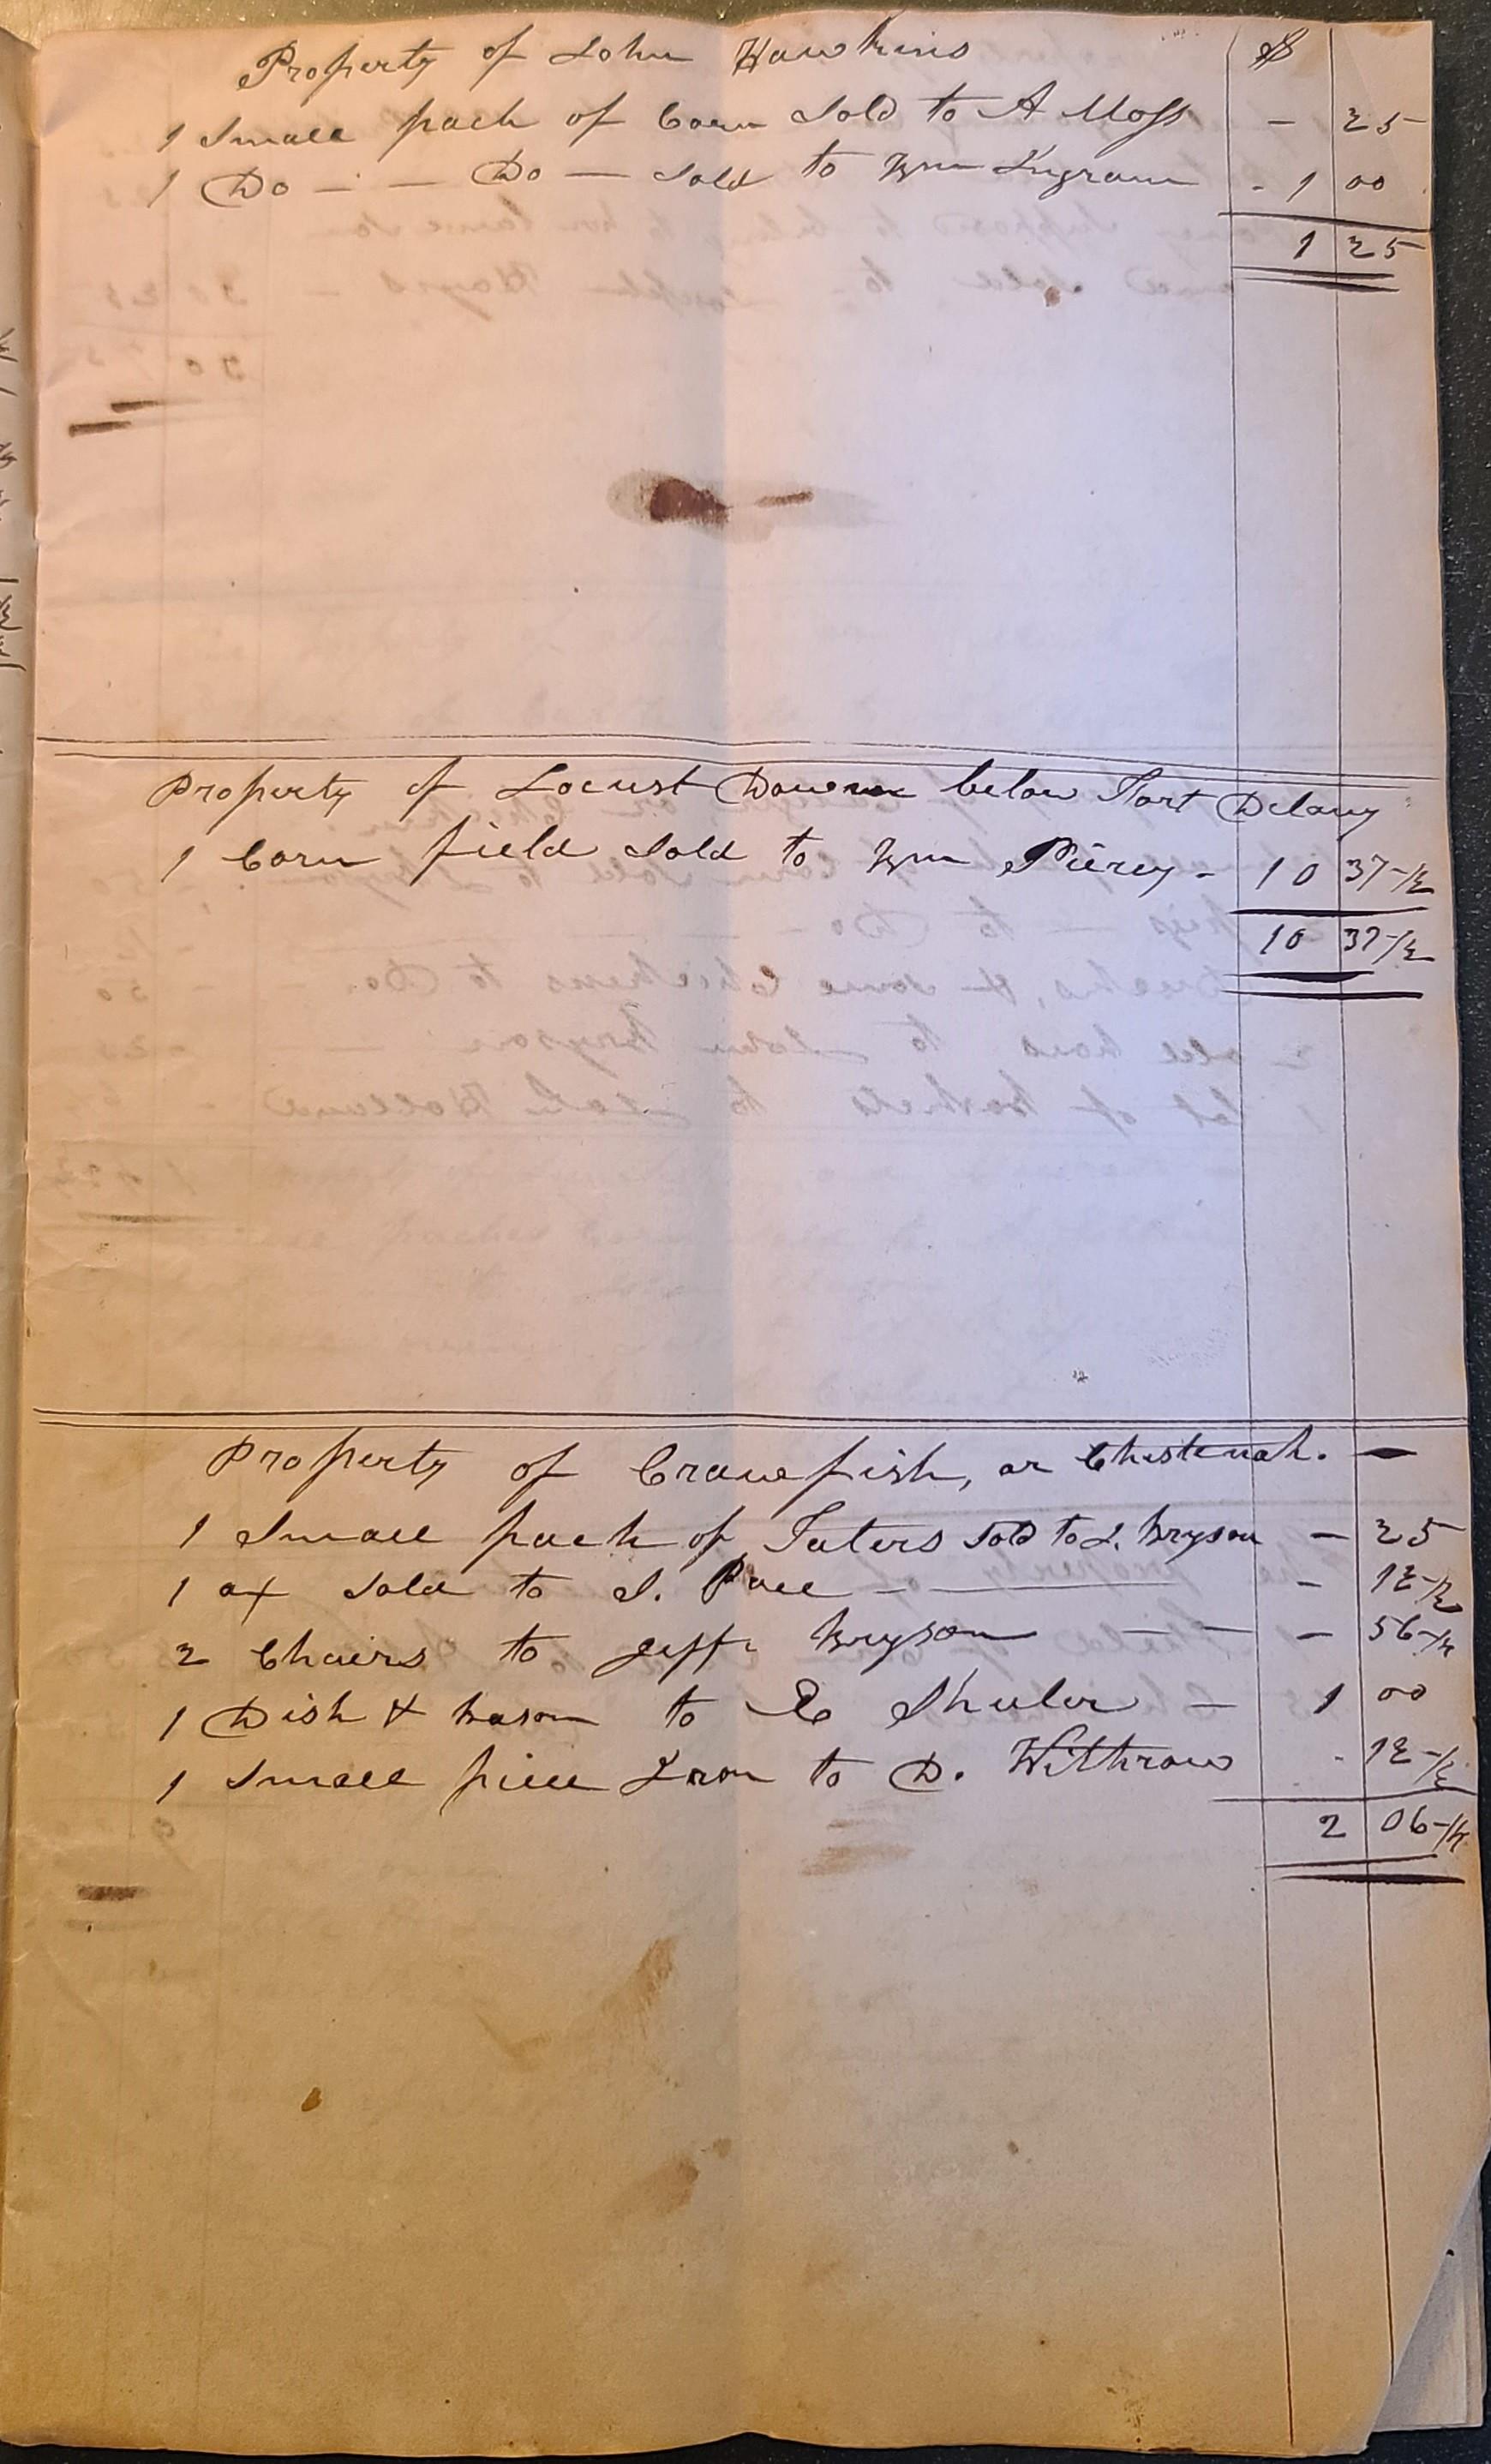 Property of John Hawkins $
1 Small pach of Corn Sold to A Moss - 25
1 Do - - Do - Sold to Wm Ingram - 1 00
1 25
Property of Locust Downe below Fort Delany
1 Corn field Sold to Wm Piercy - 10 37-½
10 37-½
Property of Crawfish, or Chistenah. -
1 Small pach of Taters Sold to J. Bryson - 25
1 ax Sold to J. Pace - - 12-½
2 Chairs to Jeff. Bryson - - - 56-¼
1 Dish & bason to E Shuler - 1 00
1 Small piece Iron to D. Withrow - 12-½
2 06-¼